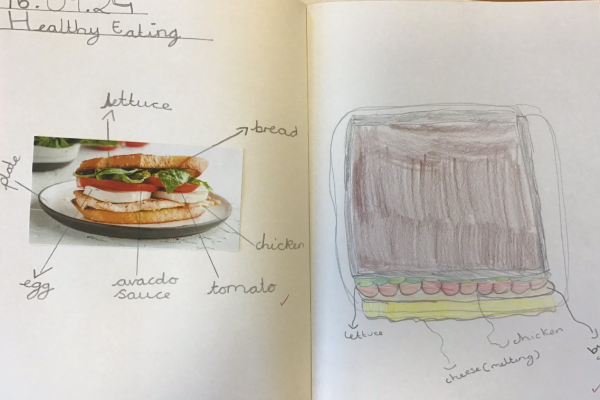 16.01.24
Healthy Eating
lettuce
bread
plate
chicken
egg
avacdo
sauce
tomato
lettuce
chicken
cheese (melting)